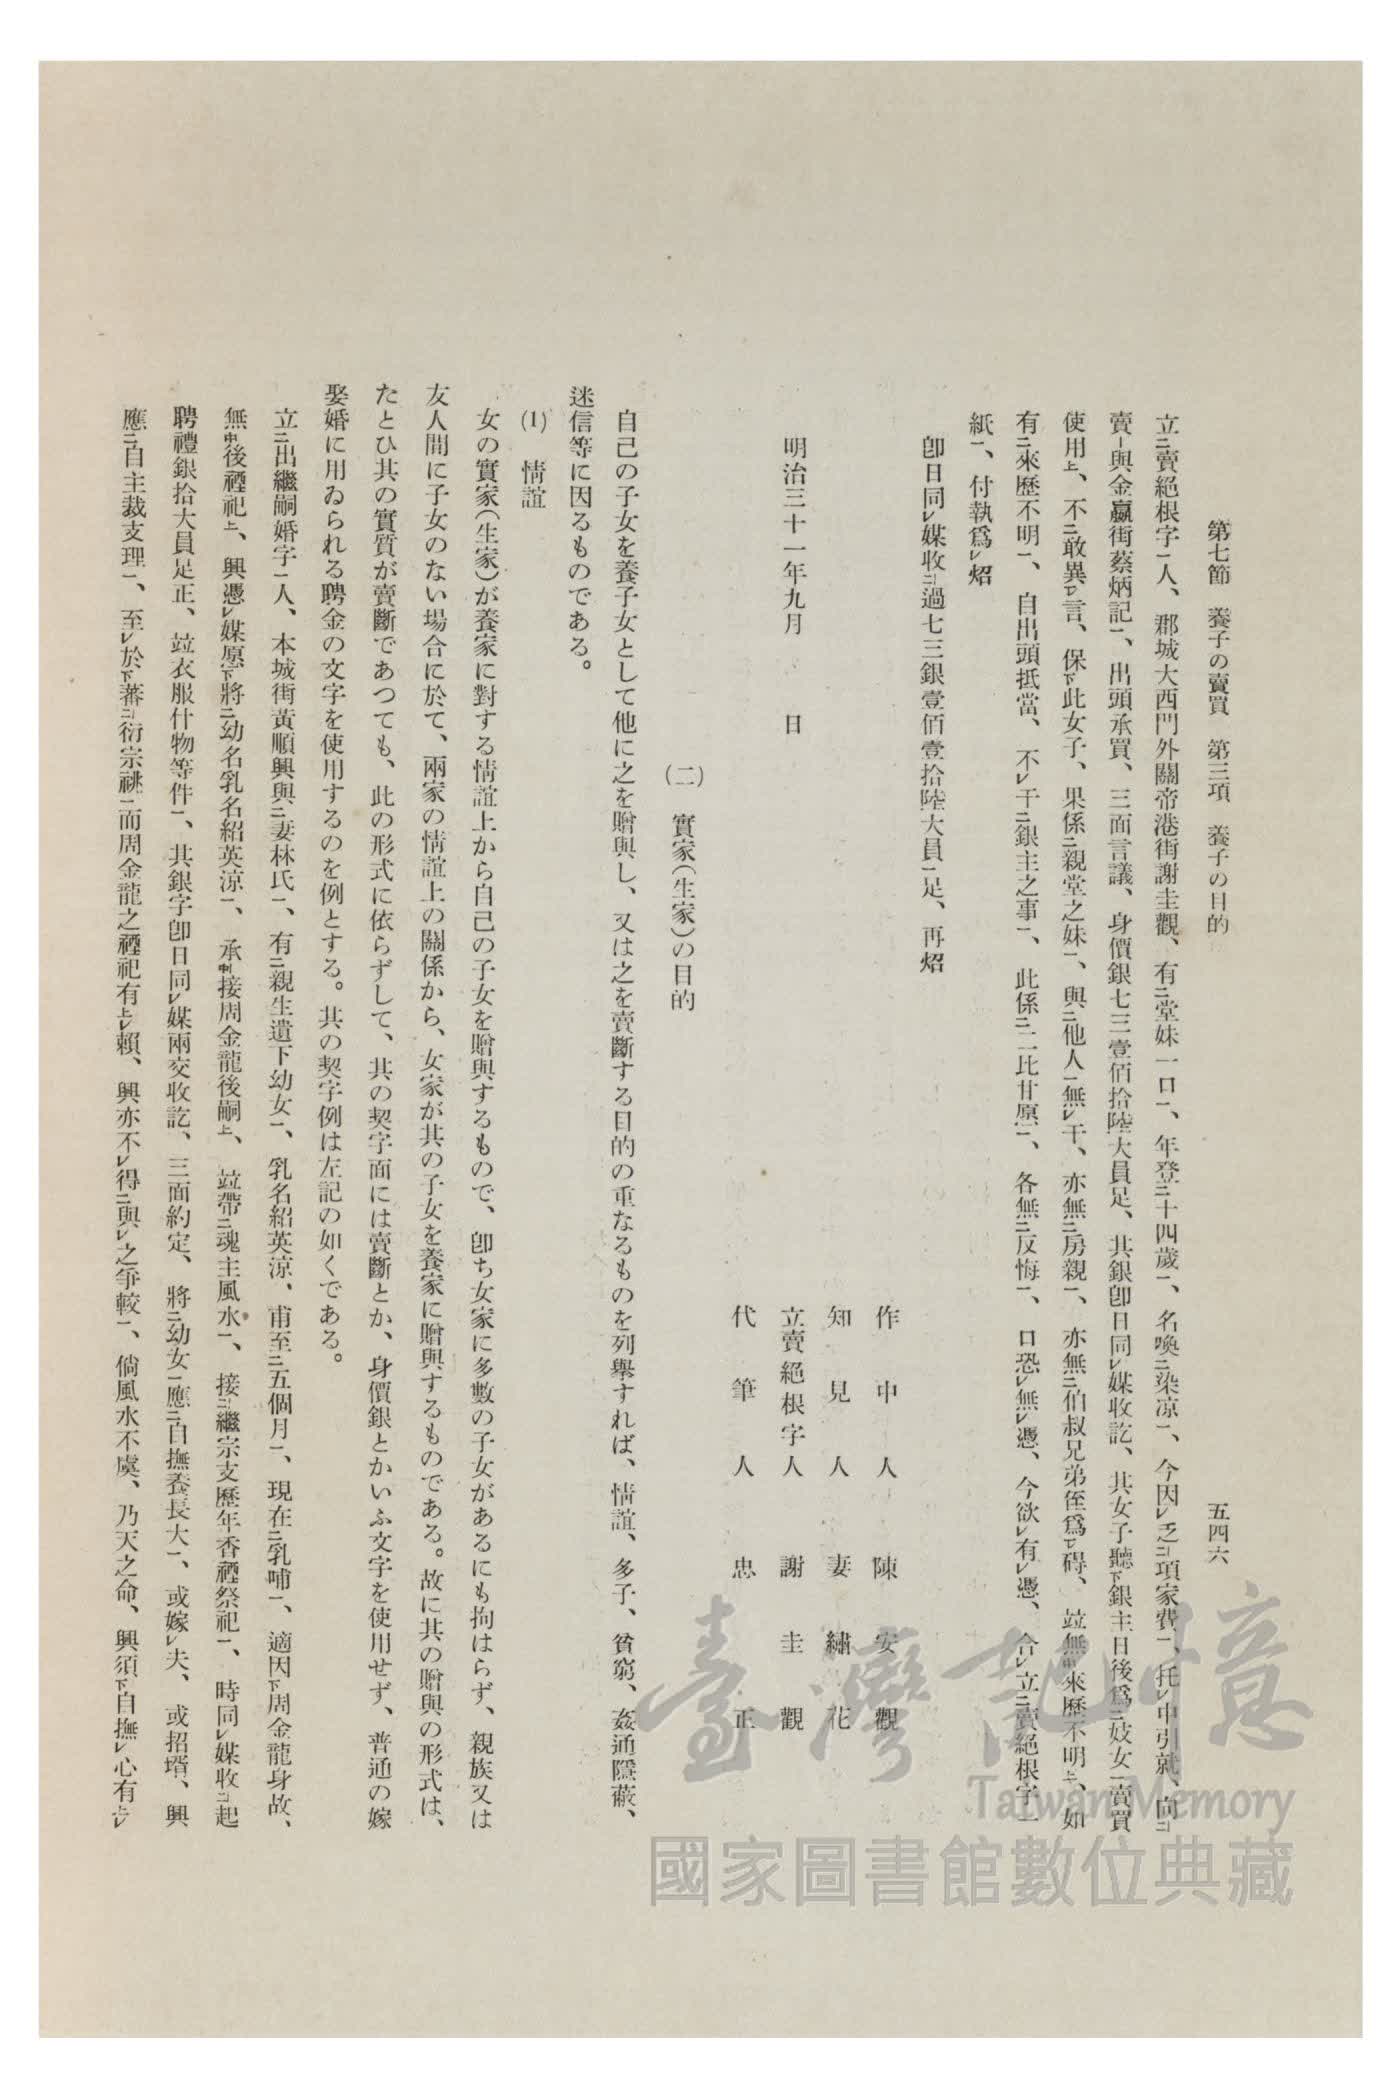 第七節　養子の賣買　第三項　養子の目的　五四六
立㆓賣絕根字㆒人、郡城大西門外關帝港街謝圭觀、有㆓堂妹一口㆒、年登㆓十四歲㆒、名喚㆓染凉㆒、今因㆑乏㆓項家費㆒、托㆑中引就、向㆘
賣㆗與金嬴街蔡炳記㆖、出頭承買、三面言議、身價銀七三壹佰拾陸大員足、其銀卽日同㆑媒收訖、其女子聽㆘銀主日後爲㆓妓女㆒賣買
使用㆖、不㆓敢異㆒言、保㆘此女子、果係㆓親堂之妹㆒、與㆓他人㆒無㆑干、亦無㆓房親㆒、亦無㆓伯叔兄弟侄爲㆒碍、竝無㆗來歷不明㆖、如
有㆓來歷不明㆒、自出頭抵當、不㆑干㆓銀主之事㆒、此係㆓二比甘愿㆒、各無㆓反悔㆒、口恐㆑無㆑憑、今欲㆑有㆑憑、合㆑立㆓賣絕根字一
紙㆒、付執爲㆑炤
卽日同㆑媒收㆓過七三銀壹佰壹拾陸大員㆒足、再炤
作中人　陳安觀
知見人　妻繡花
明治三十一年九月　　日　立賣絕根字人　謝圭觀
代筆人　忠正
(二)　實家(生家)の目的
自己の子女を養子女として他に之を贈與し、又は之を賣斷する目的の重なるものを列擧すれば、情誼、多子、貧窮、姦通隱蔽、
迷信等に因るものである。
(1)　情誼
女の實家(生家)が養家に對する情誼上から自己の子女を贈與するもので、卽ち女家に多數の子女があるにも拘はらず、親族又は
友人間に子女のない場合に於て、兩家の情誼上の關係から、女家が其の子女を養家に贈與するものである。故に其の贈與の形式は、
たとひ其の實質が賣斷であつても、此の形式に依らずして、其の契字面には賣斷とか、身價銀とかいふ文字を使用せず、普通の嫁
娶婚に用ゐられる聘金の文字を使用するのを例とする。其の契字例は左記の如くである。
立㆓出繼嗣婚字㆒人、本城街黃順興與㆓妻林氏㆒、有㆓親生遺下幼女㆒、乳名紹英涼、甫至㆓五個月㆒、現在㆓乳哺㆒、適因㆘周金龍身故、
無㆗後禋祀㆖、興憑㆑媒愿㆘將㆓幼名乳名紹英涼㆒、承㆗接周金龍後嗣㆖、竝帶㆓魂主風水㆒、接㆓繼宗支歷年香禋祭祀㆒、時同㆑媒收㆓起
聘禮銀拾大員足正、竝衣服什物等件㆒、其銀字卽日同㆑媒兩交收訖、三面約定、將㆓幼女㆒應㆓自撫養長大㆒、或嫁㆑夫、或招壻、興
應㆓自主裁支理㆒、至㆑於㆘蕃㆓衍宗祧㆒而周金龍之禋祀有㆖㆑賴、興亦不㆑得㆓與㆑之爭較㆒、倘風水不虞、乃天之命、興須㆘自撫㆑心有㆖㆑
臺灣記憶
Taiwan Memory
國家圖書館數位典藏